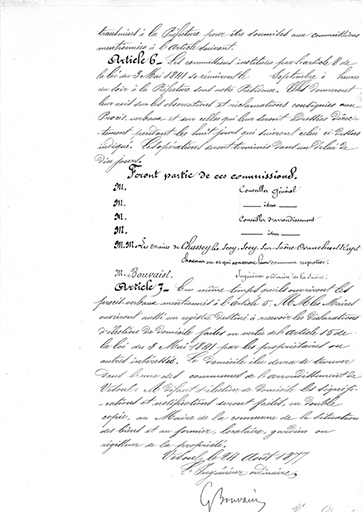 transmises à la Préfecture pour être soumises aux commissions
mentionnées à l'Article suivant.
Article 6 _ Les commissions instituées par l'article 8 de
la loi du 3 Mai 1841 se réuniront le Septembre à heures
du soir à la Préfecture sous notre Présidence. Elles donneront
leur avis sur les observations et réclamations consignées aux
Procès-verbaux et sur celles qui leur seront adressées direc-
tement pendant les huit jours qui suivront celui ci-dessus
indiqué. Les opérations seront terminées dans un délai de
dix jours.
Feront partie de ces commissions.
M. Conseiller général
M. _ idem _
M. Conseiller d'arrondissement
M. _ idem _
M.M. Les Maires de Chassey-les-Scey, Scey-sur-Saône,
chacun en ce qui concerne leur commune respective.
M. Bouvaist. Ingénieur ordinaire de la Saône.
Article 7 _ En même temps qu'ils ouvriront les
procès-verbaux mentionnés à l'article 5, MM. les Maires
ouvriront aussi un registre destiné à recevoir les déclarations
d'élection de domicile faites en vertu de l'Article 15 de
la loi du 3 Mai 1841 par les propriétaires ou
autres intéressés. Le domicile élu devra se trouver
dans l'une des communes de l'arrondissement de
Vesoul. A défaut d'élection de domicile les signifi-
cations et notifications seront faites, en double
copie, au Maire de la commune de la situation
des biens et au fermier, locataire, gardien ou
régisseur de la propriété.
Vesoul, le 24 Août 1877
L'Ingénieur ordinaire,
G Bouvaist